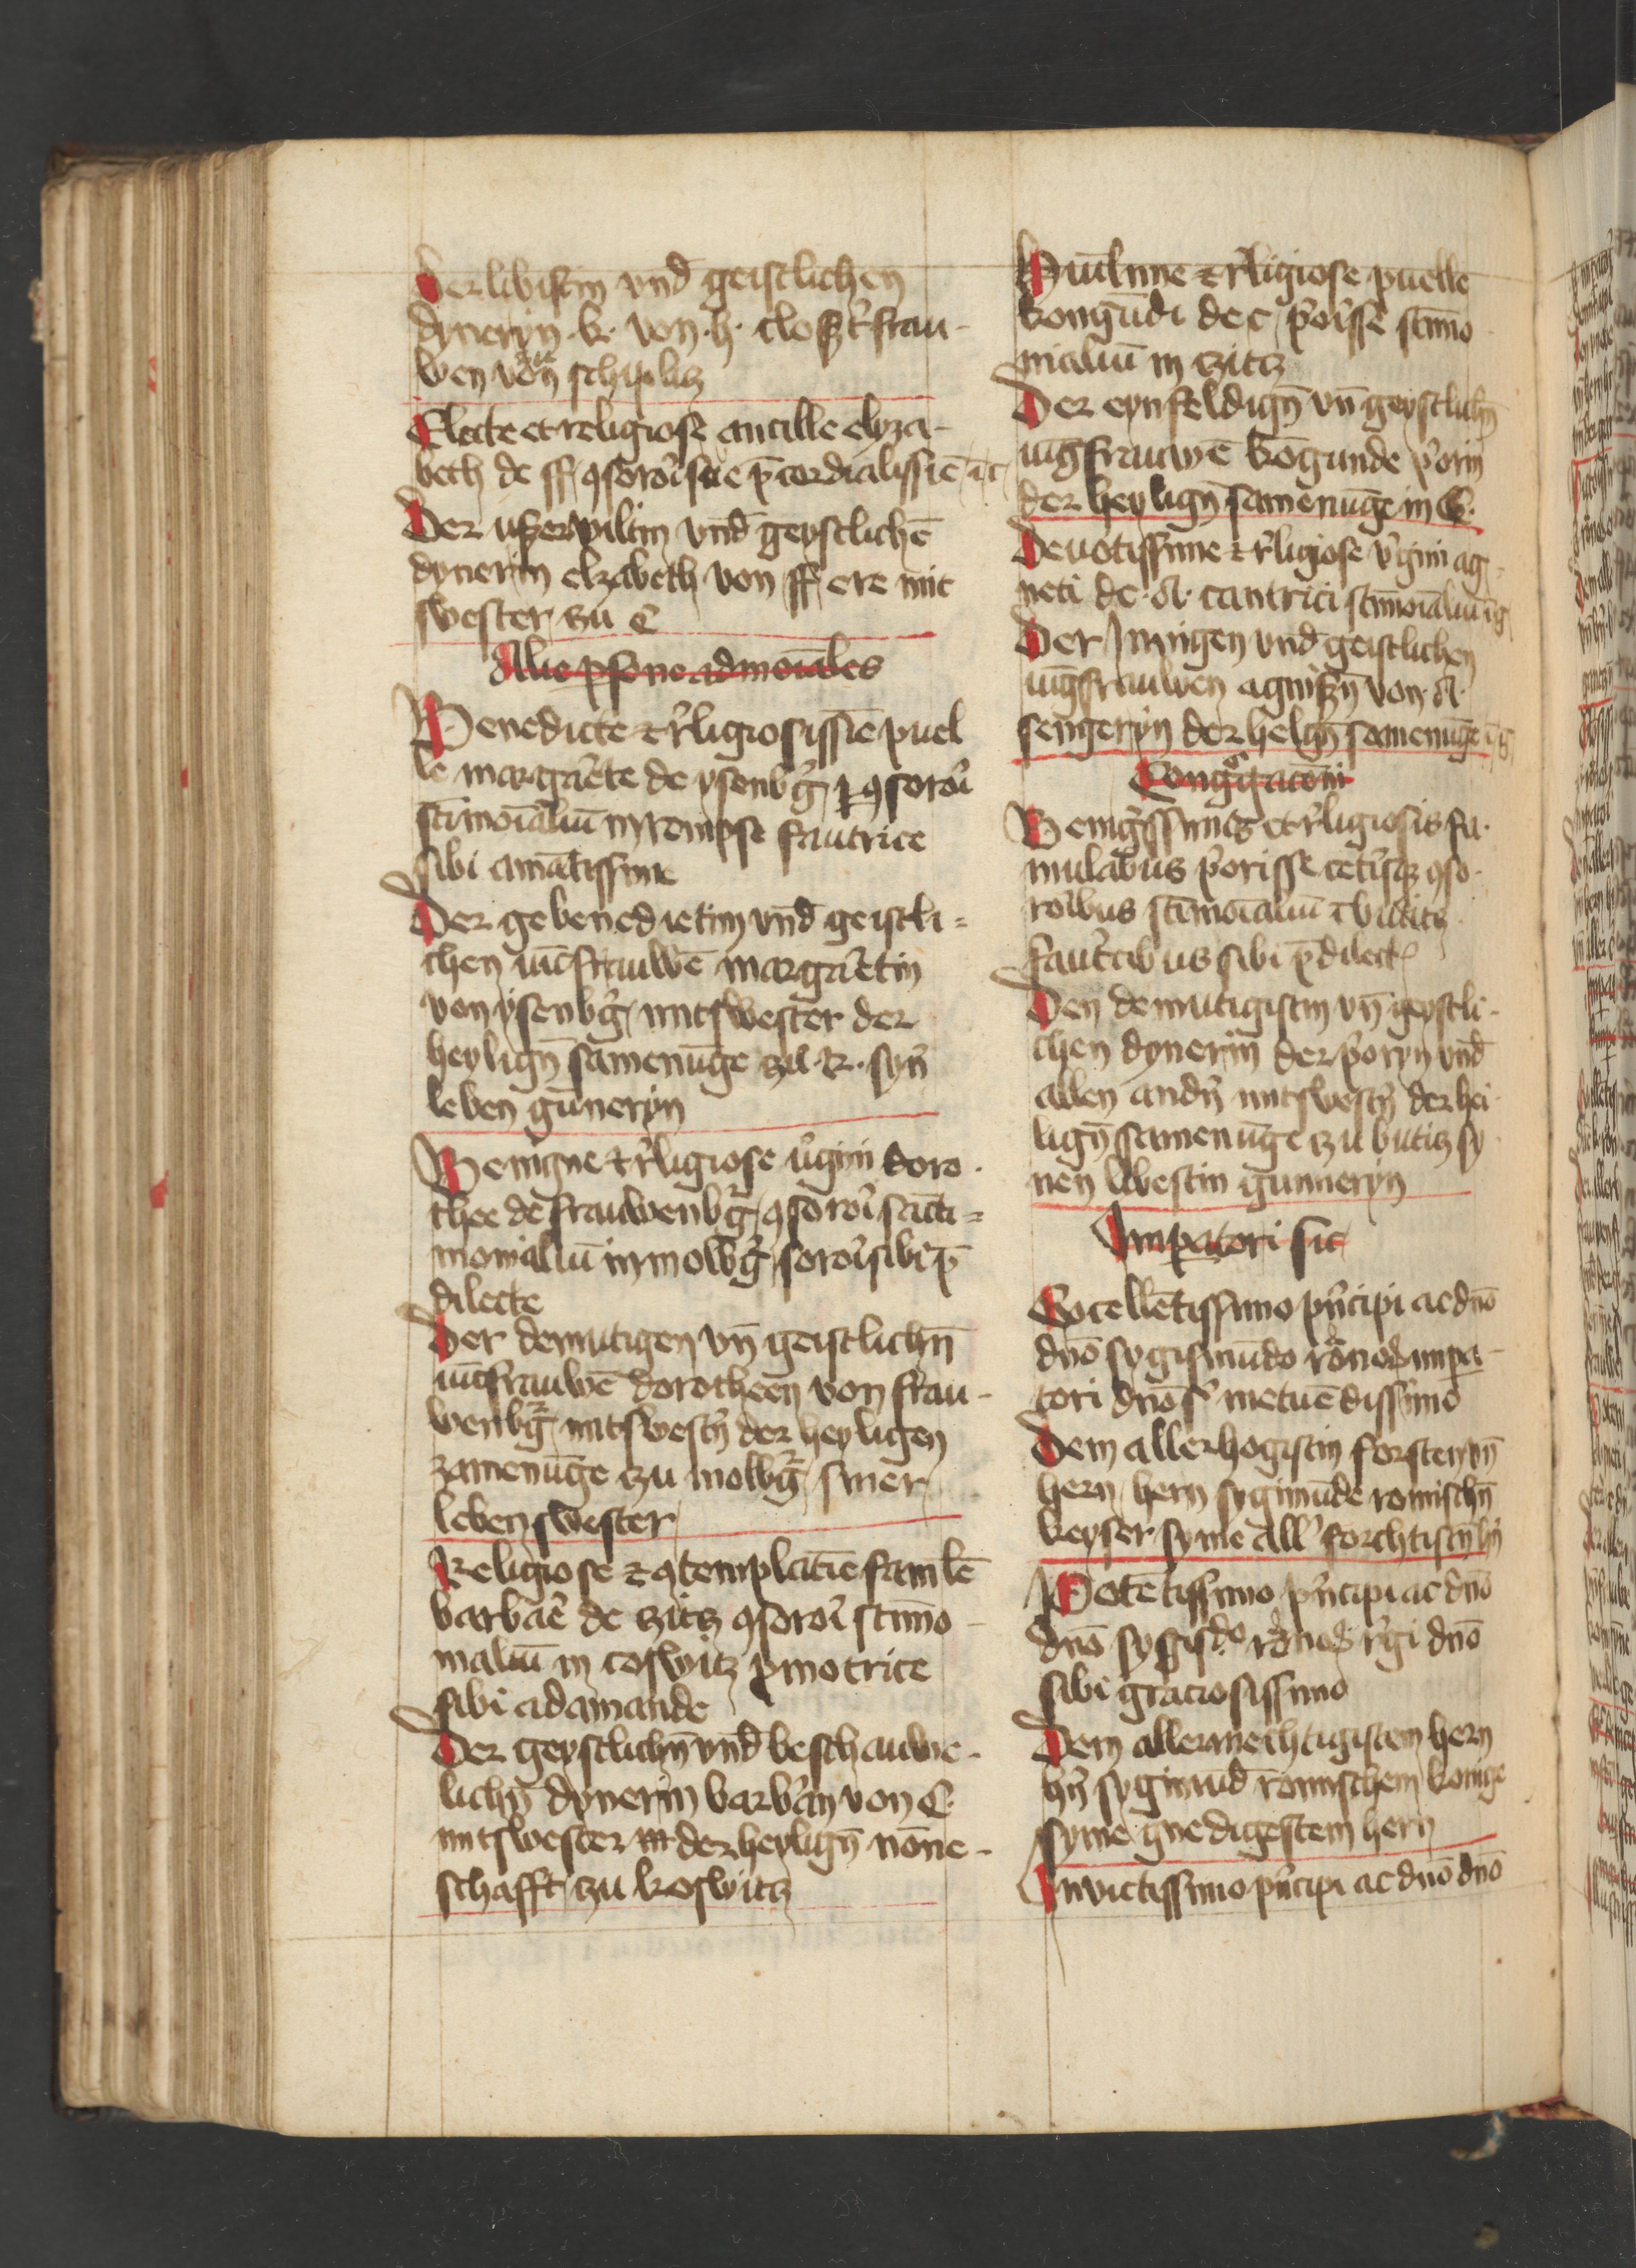 Der libistin vnd geistlichen
dyneryn .k. von .h. closzt' frau-
wen von zcu schiplitz
Electe et religiose ancille elyza-
beth de ff 9sorori sue p̄cordialissīe ī c
Der uszerwiltin vnd geystlichē
dynerin elzabeth von ff ere mit
swester zu C
Alie p̄sone ad moīales
Benedicte et r̓ligiosissīe puel
le margar̄ete de ysenb̓g 9sorori
sc̄imoīaliū in rempse fautrice
sibi amātissime
Der gebenedietim vnd geistli=
chen iūcfrauwē margar̄etin
von ysenb̓g mitswester der
heylign̄ samenūge zu .R. syn̄
leben gūneryn
Benigne et r̓ligiose v̓gini doro-
thee de frauwenb̓g 9sorori sācti=
monialiū in molb̓g sorori sibi p̄
dilecte
Der demutigen vn̄ geistlichn̄
iūcfrauwē dorotheen von frau-
wenb̓g mitswest̓ der heyligen
zamenūge zu molb̓g siner
leben swester
Religiose et 9templatīe famlē
barbar̄e de zitz 9sorori sc̄īmo-
nialiū in coswitz pmotrice
sibi adamande
Der geystlichn̄ vnd beschauwe-
lichn̄ dynerin barbar̄an von C.
mitswester der heylign̄ nōne-
schafft zu koswitz
Humlime et r̓ligiose puelle
kongūdi de c p̓orisse sc̄īmo
nialiū in zitz
Der eynfeldign̄ vn̄ geystlichn̄
iūgfrauwē kōgunde p̓orin
der heylign̄ samenūge in C.
Deuotissime et r̓ligiose v̓gini ag-
neti de .A. cantrici sc̄īmoīaliū ī g
Der Innigen vnd geistlichen
iūgfrauwen agniszn̄ von .A.
sengeryn der helgn̄ samenūge ī g
Congregacōni
Benig̓ssimis et r̓ligiosis fa-
mulabus p̓orisse cet̓isq; 9so-
roribus sc̄īmoīaliū ī buditz
faut̓cibus sibi p̄dilect̓
Den demutigistin vn̄ geystli-
chen dynerin der p̓oryn vnd
allen andn̄ mitswest̓n der hei-
lign̄ samenūge zu butitz sy
nen libestin gunneryn
Imperatori sic
Excellētissimo pn̓cipi ac dn̄o
dn̄o sygismūdo rōnoꝝ impa-
tori dn̄o s' metuēdissimo
Dem allerhogistin forsten vn̄
hern hern sygimūde romischn̄
keyser syme all' forchtistn̄ hn̄
Potētissimo pn̓cipi ac dn̄o
dn̄o sygisdo rōnoꝝ r̓gi dn̄o
sibi graciosissimo
Dem allermechtigisten hern
hn̄ sygimūd romischem konige
syme gnedigestem hern
Invictissimo pn̓cipi ac dn̄o dn̄o